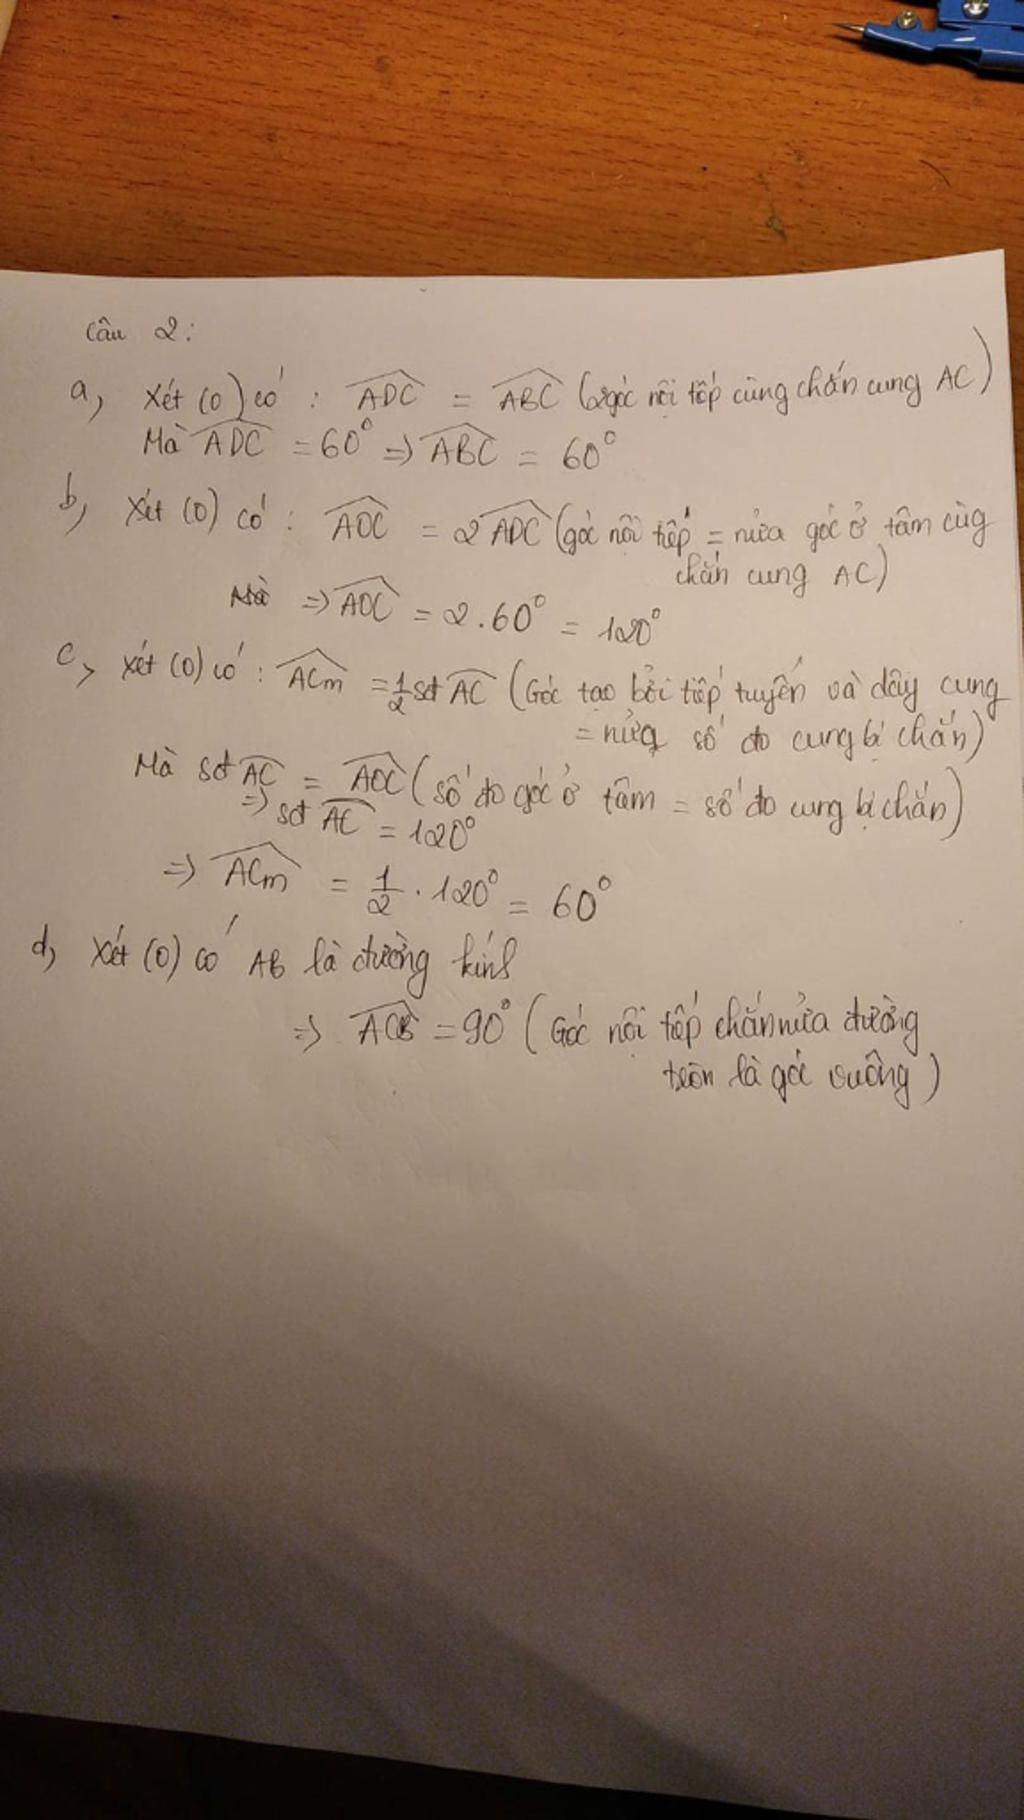 Câu 2:
a, Xét (O) có : $\widehat{ADC}$ = $\widehat{ABC}$ (2 góc nội tiếp cùng chắn cung AC)
Mà $\widehat{ADC}$ = 60° ⇒ $\widehat{ABC}$ = 60°
b, Xét (O) có : $\widehat{AOC}$ = 2$\widehat{ADC}$ (góc nội tiếp = nửa góc ở tâm cùg
chắn cung AC)
Mà ⇒ $\widehat{AOC}$ = 2.60° = 120°
c, Xét (O) có : $\widehat{ACm}$ = $\frac{1}{2}$ sđ $\widehat{AC}$ (Góc tạo bởi tiếp tuyến và dây cung
= nửa số đo cung bị chắn)
Mà sđ $\widehat{AC}$ = $\widehat{AOC}$ (số đo góc ở tâm = số đo cung bị chắn)
⇒ sđ $\widehat{AC}$ = 120°
⇒ $\widehat{ACm}$ = $\frac{1}{2}$ . 120° = 60°
d, Xét (O) có AB là đường kính
⇒ $\widehat{ACB}$ = 90° (Góc nội tiếp chắn nửa đường
tròn là góc vuông)